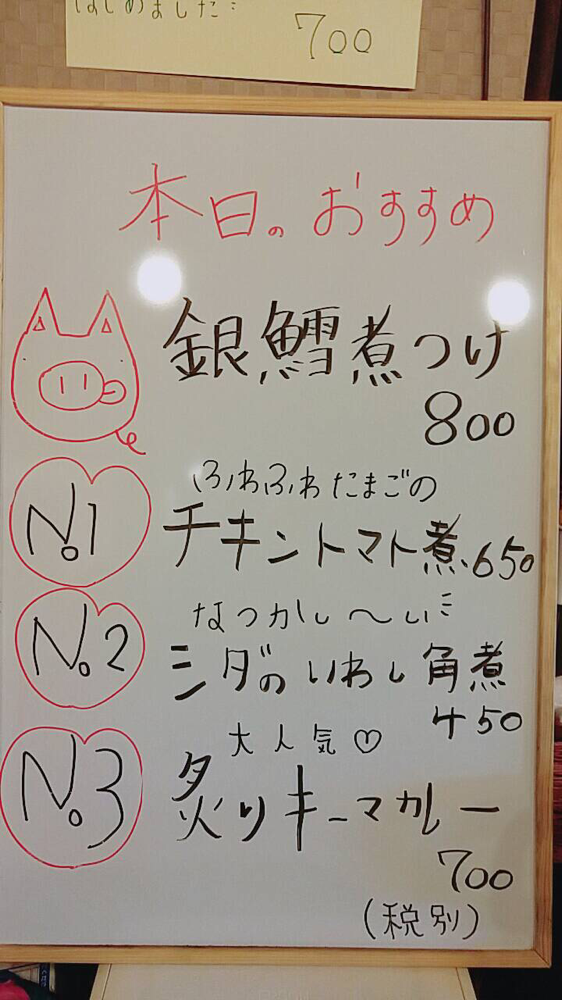 はじめました:
700
本日のおすすめ
銀鱈煮つけ
800
No.1
ふわふわたまごの
チキントマト煮 650
No.2
なつかし〜い:
シダのいわし角煮
450
No.3
大人気♡
炙りキーマカレー
700
(税別)